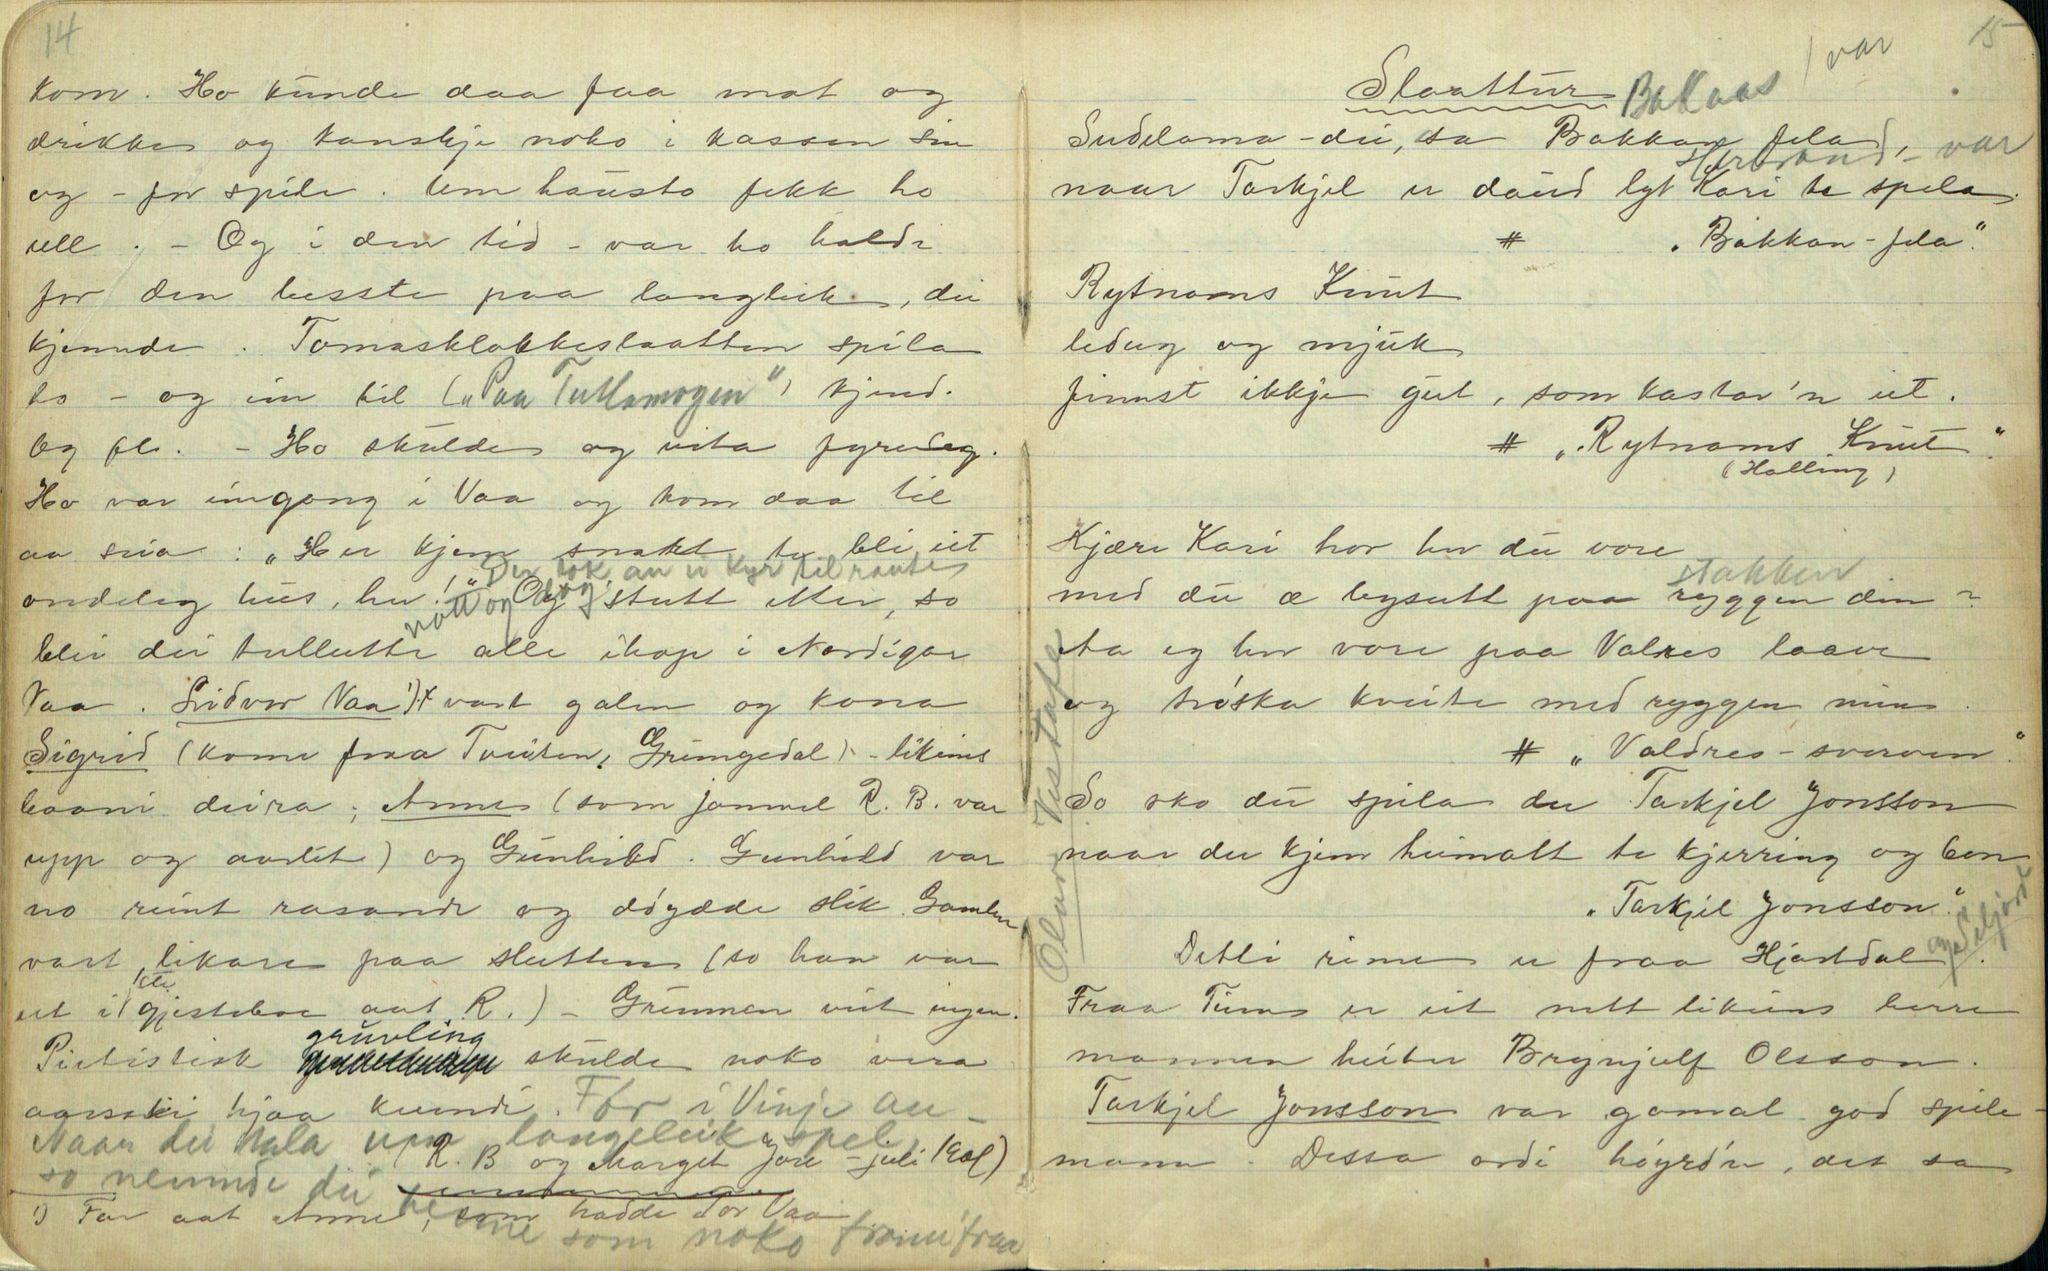 14
kom. Ho kunde daa faa mat og
drikke og kanskje noko i kassen sin
og - for spile. Um hausto fekk ho
ull. - Og i den tid - var ho haldi
for den besste paa langleik, dei
kjennde. Tomasklokkeslaatten spila
ho - og ein til („Paa Tuttamogen”) kjend.
Og fl. - Ho skulde og vita fyreseg.
Ho var eingong i Vaa og kom daa til
aa seia: „Her kjem snakt te bli eit
Der tok au ei kyr til raute
endeleg hus, her!” Og stutt etter, so
natt og dag.
blei dei tullutte alle ihop i Nordigar
Vaa. Eidvor Vaa 1) vart galen og kona
Sigrid (komi fraa Tveiten, Grungedal) - likeins
baani deira; Anne (som jamnel R. B. var
upp og aarlet) og Gunhild. Gunhild var
no reint rasande og döydde slik. Gamlen
vart likare paa slutten (so han var
ut i eit gjestebo aat R.) - Grunnen veit ingen.
Pietistisk gruvling skulde noko vera
aarsaki hjaa kvendi. For i Vinje au -
Naar dei tala um langeleik spel,
(R. B og Marget Jore - juli 1901)
so nemnde dei
1) Far aat Anne, som hadde Tor Vaa
denne som noko framifraa
15
Slaattur
Bakaas
var
Sudelama-dei, sa Bakkan fela,
Herbrand - var
naar Tarkjel er daud lyt Kari te spela.
# „Bakkan-fela”.
Rytnams Knut
ledug og mjuk
finnst ikkje gut, som kastar'n ut.
# „Rytnams Knut”.
(Halling)
Kjære Kari hor her du vore
stakken
med du æ bysutt paa ryggen din -
Aa eg her vore paa Valres laave
og tröska kveite med ryggen min.
# „Valdres-sverven”.
So sko du spila du Tarkjel Jonsson
naar du kjem heimatt te kjerring og bon
„Tarkjel Jonsson”.
Detti rimes er fraa Hjartdal
og Seljord.
Fraa Tinn er eit nett likeins berre
mannen heiter Brynjulf Olsson.
Tarkjel Jonsson var gamal god spele-
mann. Dessa ordi höyrd'n, det sa
Olav Vistafe